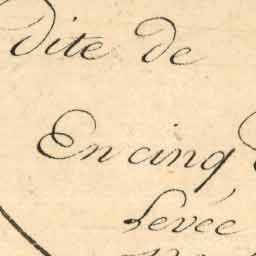 dite de
En cinq
Levée